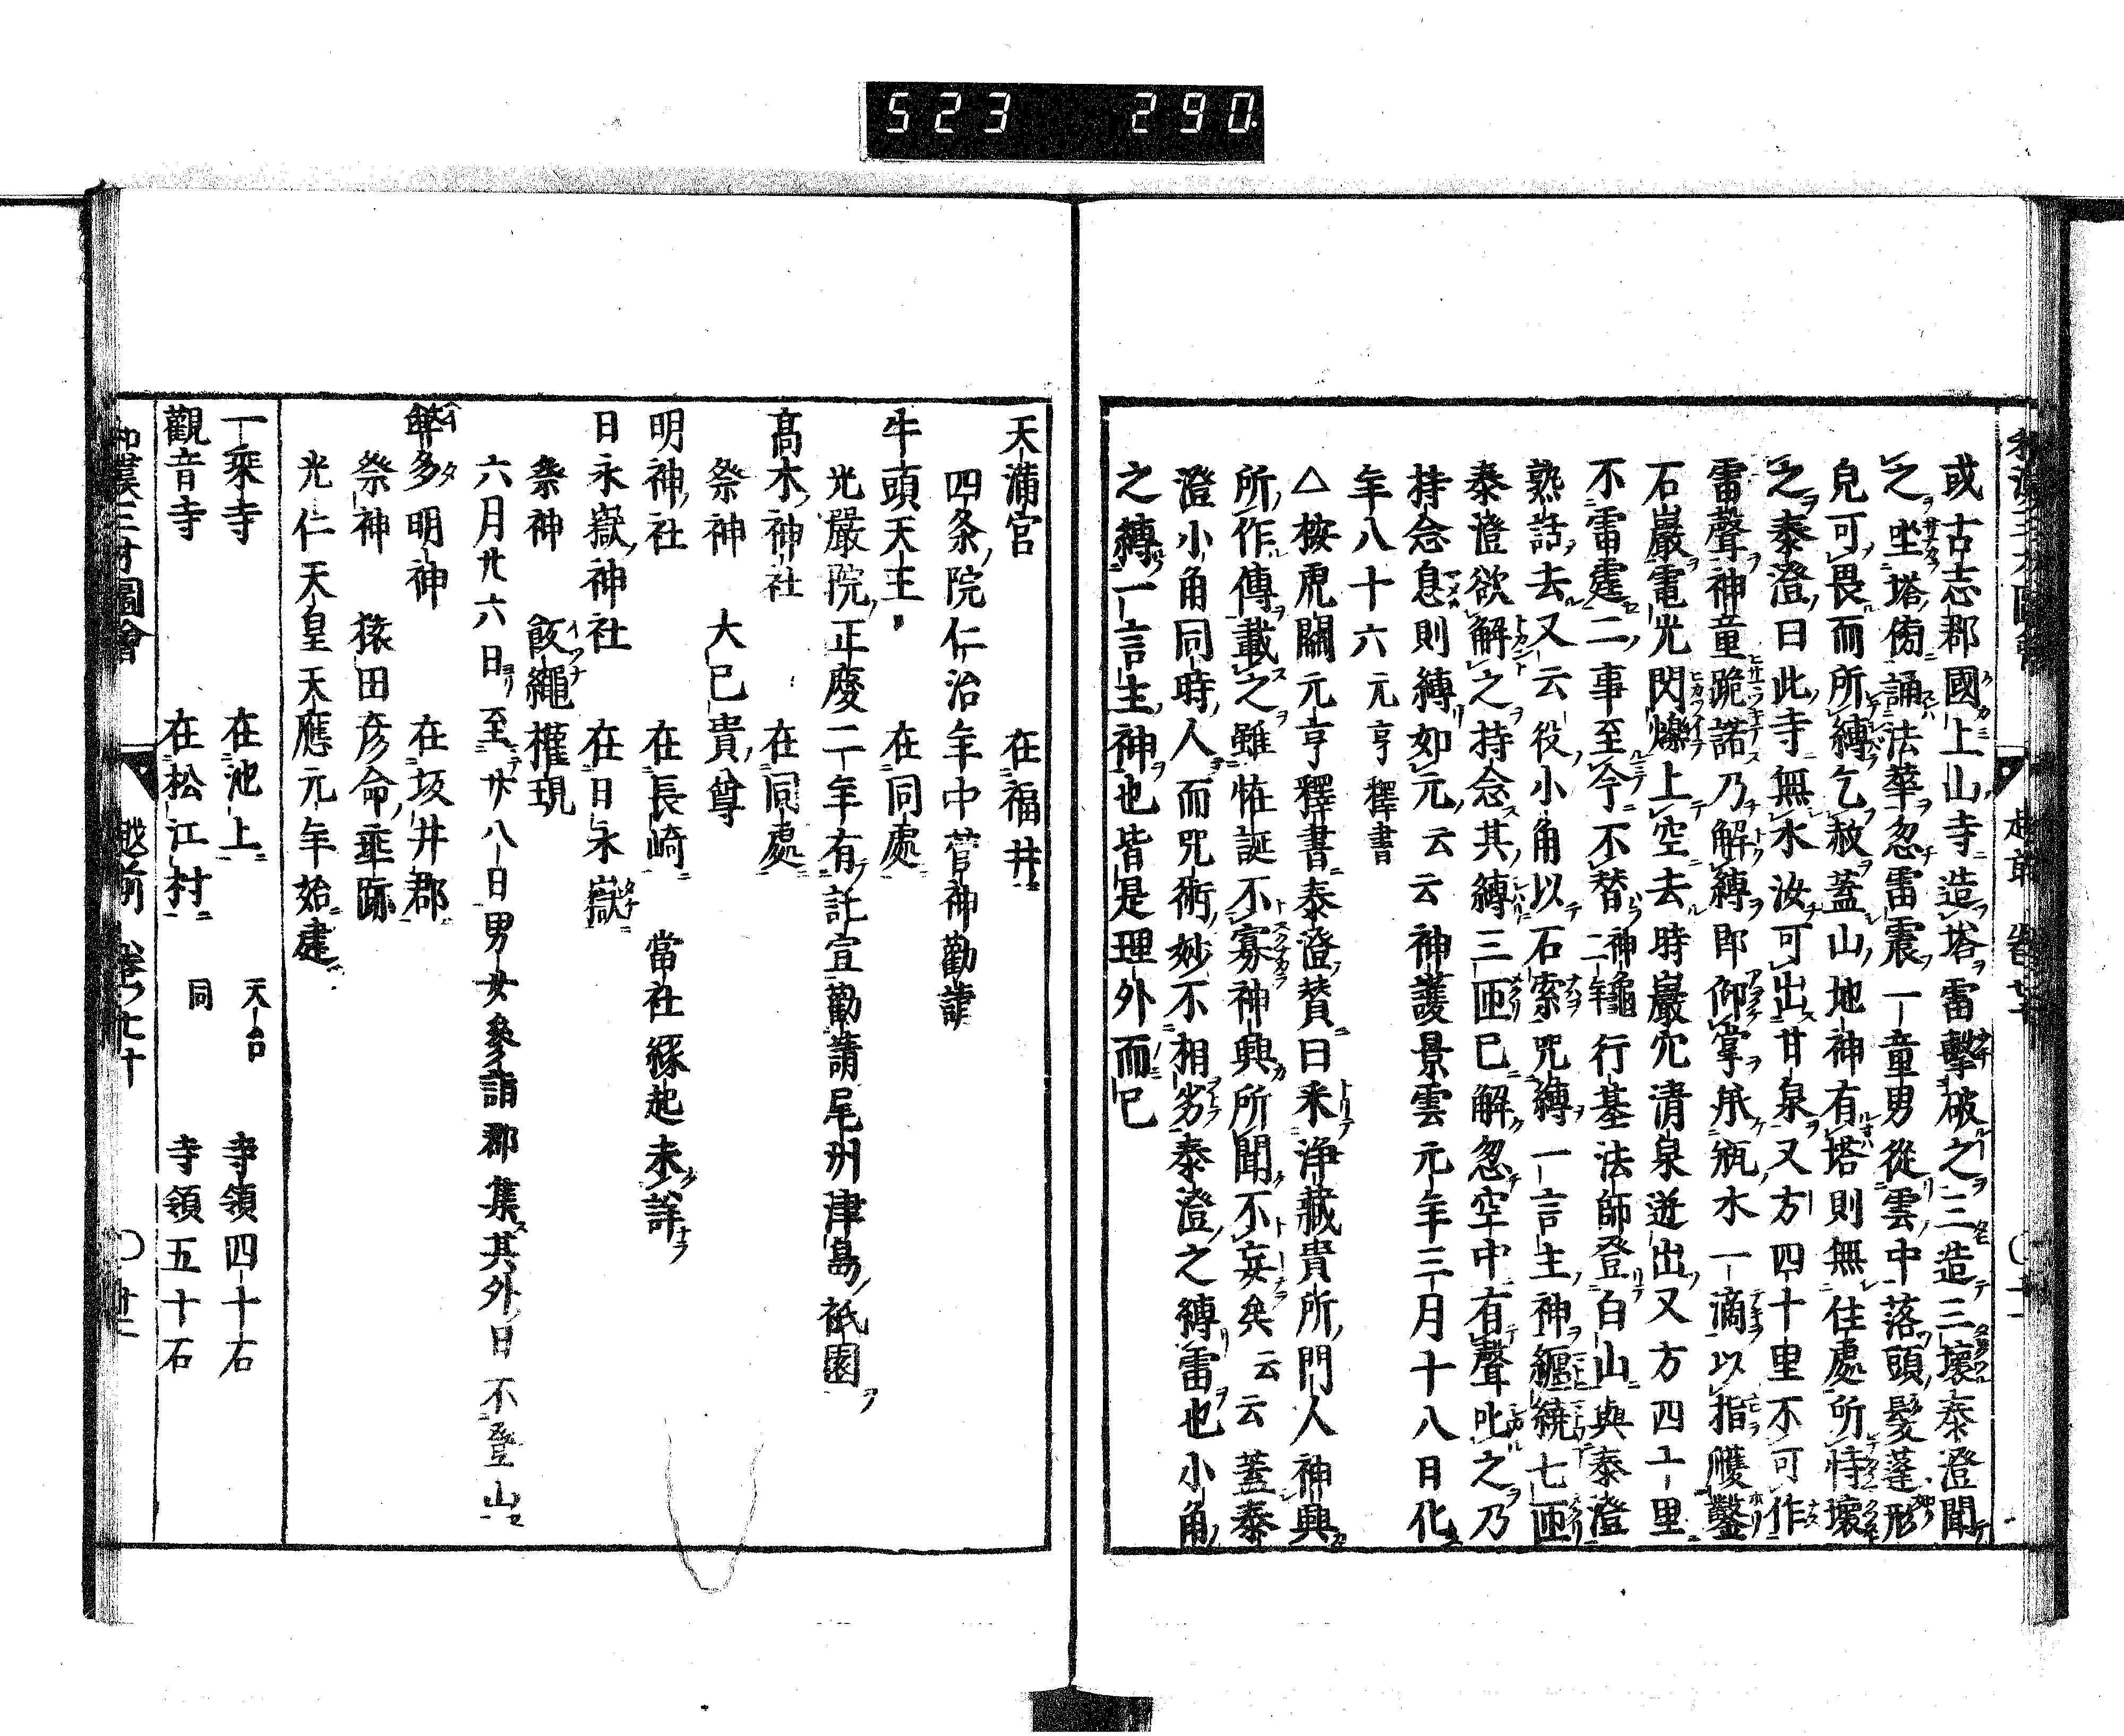 523 290.
或古志郡國上山寺造塔雷擊破之三造三壞泰澄聞
之坐塔傍誦法華忽雷震一童男從雲中落頭髮蓬形
皃可畏而所縛乞赦蓋山地神有塔則無住處所恃壞
之泰澄曰此寺無水汝可出甘泉又方四十里不可作
雷聲神童跪諾乃解縛即仰掌承瓶水一滴以指爴鑿
石巖電光閃爍上空去時巖穴清泉迸出又方四十里
不雷霆二事至今不替神龜二年行基法師登白山與泰澄
熟話去又云役小角以石索咒縛一言主神纏繞七匝
泰澄欲解之持念其縛三匝已解忽空中有聲叱之乃
持念息則縛如元云云神護景雲元年三月十八日化
年八十六元亨釋書
△按虎關元亨釋書泰澄賛曰釆淨藏貴所門人神興
所作傳載之雖怪誕不寡神興所聞不妄矣云云蓋泰
澄小角同時人而咒術妙不相劣泰澄之縛雷也小角
之縛一言主神也皆是理外而已
天滿宮 在福井
四条院仁治年中菅神勸請
牛頭天王 在同處
光嚴院正慶二年有託宣勸請尾州津島祇園
髙木神社 在同處
祭神 大已貴尊
明神社 在長崎 當社緣起未詳
日永嶽神社 在日永嶽
祭神 飯繩權現
六月廿六日至廿八日男女參詣郡集其外日不登山
多明神 在坂井郡
祭神 猿田彦命垂跡
光仁天皇天應元年始建
一乘寺 在池上 天台 寺領四十石
觀音寺 在松江村 同 寺領五十石
和漢三才圖會 越前 卷ノ七十